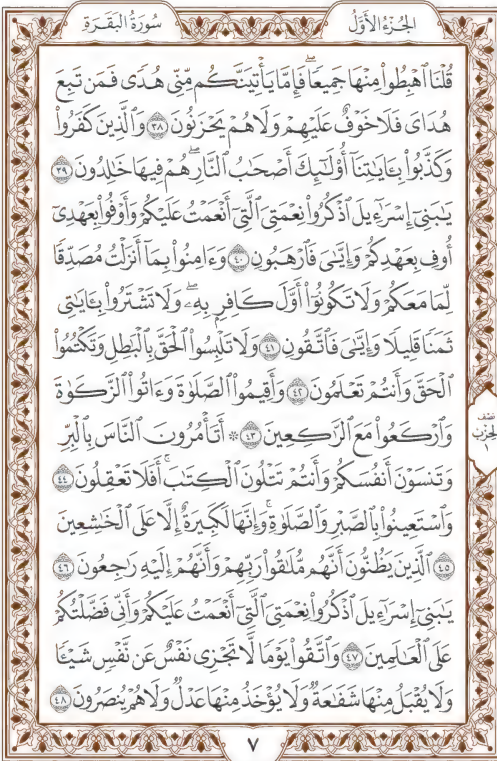 سُورَةُ البَقَرَةِ
الجُزْءُ الأَوَّلُ
قُلْنَا ٱهْبِطُوا۟ مِنْهَا جَمِيعًۭا ۖ فَإِمَّا يَأْتِيَنَّكُم مِّنِّى هُدًۭى فَمَن تَبِعَ
هُدَاىَ فَلَا خَوْفٌ عَلَيْهِمْ وَلَا هُمْ يَحْزَنُونَ ٣٨ وَٱلَّذِينَ كَفَرُوا۟
وَكَذَّبُوا۟ بِـَٔايَـٰتِنَآ أُو۟لَـٰٓئِكَ أَصْحَـٰبُ ٱلنَّارِ ۖ هُمْ فِيهَا خَـٰلِدُونَ ٣٩
يَـٰبَنِىٓ إِسْرَٰٓءِيلَ ٱذْكُرُوا۟ نِعْمَتِىَ ٱلَّتِىٓ أَنْعَمْتُ عَلَيْكُمْ وَأَوْفُوا۟ بِعَهْدِىٓ
أُوفِ بِعَهْدِكُمْ وَإِيَّـٰىَ فَٱرْهَبُونِ ٤٠ وَءَامِنُوا۟ بِمَآ أَنزَلْتُ مُصَدِّقًۭا
لِّمَا مَعَكُمْ وَلَا تَكُونُوٓا۟ أَوَّلَ كَافِرٍۭ بِهِۦ ۖ وَلَا تَشْتَرُوا۟ بِـَٔايَـٰتِى
ثَمَنًۭا قَلِيلًۭا وَإِيَّـٰىَ فَٱتَّقُونِ ٤١ وَلَا تَلْبِسُوا۟ ٱلْحَقَّ بِٱلْبَـٰطِلِ وَتَكْتُمُوا۟
ٱلْحَقَّ وَأَنتُمْ تَعْلَمُونَ ٤٢ وَأَقِيمُوا۟ ٱلصَّلَوٰةَ وَءَاتُوا۟ ٱلزَّكَوٰةَ
وَٱرْكَعُوا۟ مَعَ ٱلرَّٰكِعِينَ ٤٣ ۞ أَتَأْمُرُونَ ٱلنَّاسَ بِٱلْبِرِّ
وَتَنسَوْنَ أَنفُسَكُمْ وَأَنتُمْ تَتْلُونَ ٱلْكِتَـٰبَ ۚ أَفَلَا تَعْقِلُونَ ٤٤
وَٱسْتَعِينُوا۟ بِٱلصَّبْرِ وَٱلصَّلَوٰةِ ۚ وَإِنَّهَا لَكَبِيرَةٌ إِلَّا عَلَى ٱلْخَـٰشِعِينَ
٤٥ ٱلَّذِينَ يَظُنُّونَ أَنَّهُم مُّلَـٰقُوا۟ رَبِّهِمْ وَأَنَّهُمْ إِلَيْهِ رَٰجِعُونَ ٤٦
يَـٰبَنِىٓ إِسْرَٰٓءِيلَ ٱذْكُرُوا۟ نِعْمَتِىَ ٱلَّتِىٓ أَنْعَمْتُ عَلَيْكُمْ وَأَنِّى فَضَّلْتُكُمْ
عَلَى ٱلْعَـٰلَمِينَ ٤٧ وَٱتَّقُوا۟ يَوْمًۭا لَّا تَجْزِى نَفْسٌ عَن نَّفْسٍۢ شَيْـًۭٔا
وَلَا يُقْبَلُ مِنْهَا شَفَـٰعَةٌۭ وَلَا يُؤْخَذُ مِنْهَا عَدْلٌۭ وَلَا هُمْ يُنصَرُونَ ٤٨
نِصْف
الحِزْب
١
٧